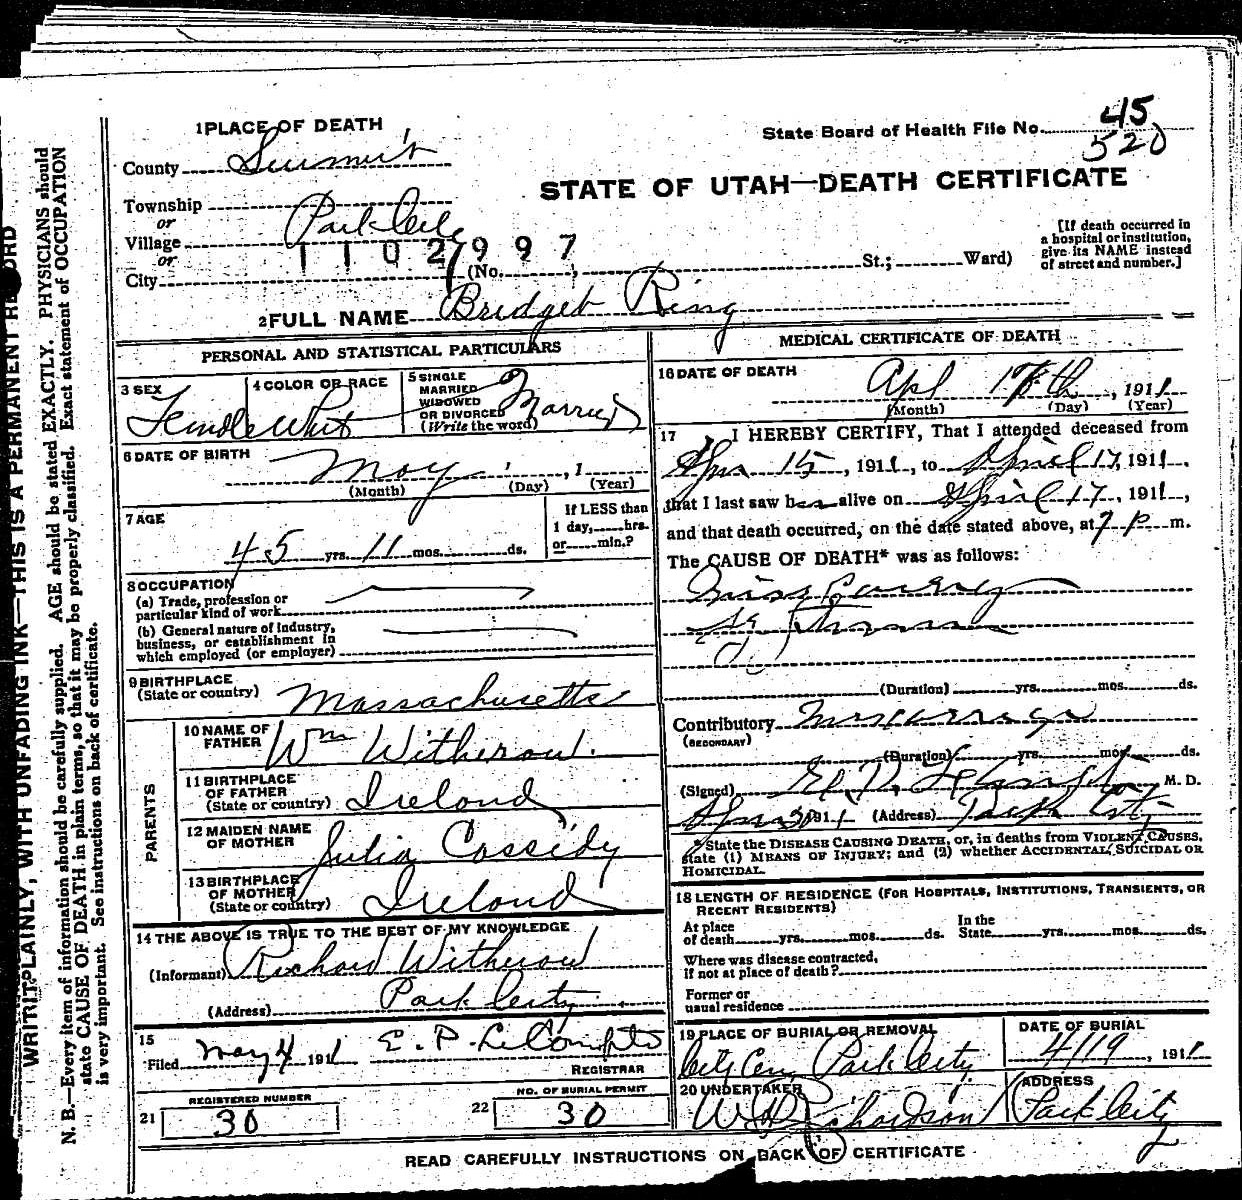 45
1 PLACE OF DEATH
State Board of Health File No. 520
County Summit
STATE OF UTAH—DEATH CERTIFICATE
Township
or
Village Park City
or
1102997
City (No. , St.; Ward)
[If death occurred in
a hospital or institution,
give its NAME instead
of street and number.]
2 FULL NAME Bridget Ring
PERSONAL AND STATISTICAL PARTICULARS
3 SEX
Female
4 COLOR OR RACE
Whit
5 SINGLE
MARRIED
WIDOWED
OR DIVORCED
(Write the word)
Married
6 DATE OF BIRTH
May , 1
(Month) (Day) (Year)
7 AGE
45 yrs. 11 mos. ds.
If LESS than
1 day, hrs.
or min.?
8 OCCUPATION
(a) Trade, profession or
particular kind of work
(b) General nature of industry,
business, or establishment in
which employed (or employer)
9 BIRTHPLACE
(State or country) Massachusetts
PARENTS
10 NAME OF
FATHER Wm Witherow.
11 BIRTHPLACE
OF FATHER
(State or country) Ireland
12 MAIDEN NAME
OF MOTHER Julia Cassidy
13 BIRTHPLACE
OF MOTHER
(State or country) Ireland
14 THE ABOVE IS TRUE TO THE BEST OF MY KNOWLEDGE
(Informant) Richard Witherow
(Address) Park City
15
Filed May 4 1911 E. P. LeCompte
REGISTRAR
REGISTERED NUMBER
21 30
NO. OF BURIAL PERMIT
22 30
MEDICAL CERTIFICATE OF DEATH
16 DATE OF DEATH
Apl 17th, 1911
(Month) (Day) (Year)
17 I HEREBY CERTIFY, That I attended deceased from
Apr 15, 1911, to April 17, 1911,
that I last saw her alive on April 17, 1911,
and that death occurred, on the date stated above, at 7 P m.
The CAUSE OF DEATH* was as follows:
(Duration) yrs. mos. ds.
Contributory Miscarriage
(SECONDARY)
(Duration) yrs. mos. ds.
(Signed) M. D.
1911 (Address) Park City
* State the DISEASE CAUSING DEATH, or, in deaths from VIOLENT CAUSES,
state (1) MEANS OF INJURY; and (2) whether ACCIDENTAL, SUICIDAL OR
HOMICIDAL.
18 LENGTH OF RESIDENCE (FOR HOSPITALS, INSTITUTIONS, TRANSIENTS, OR
RECENT RESIDENTS)
At place
of death yrs. mos. ds.
In the
State yrs. mos. ds.
Where was disease contracted,
if not at place of death?
Former or
usual residence
19 PLACE OF BURIAL OR REMOVAL
City Cem Park City
DATE OF BURIAL
4/19, 1911
20 UNDERTAKER
W H Richardson
ADDRESS
Park City
READ CAREFULLY INSTRUCTIONS ON BACK OF CERTIFICATE
WRITE PLAINLY, WITH UNFADING INK—THIS IS A PERMANENT RECORD
N. B.—Every item of information should be carefully supplied. AGE should be stated EXACTLY. PHYSICIANS should
state CAUSE OF DEATH in plain terms, so that it may be properly classified. Exact statement of OCCUPATION
is very important. See instructions on back of certificate.